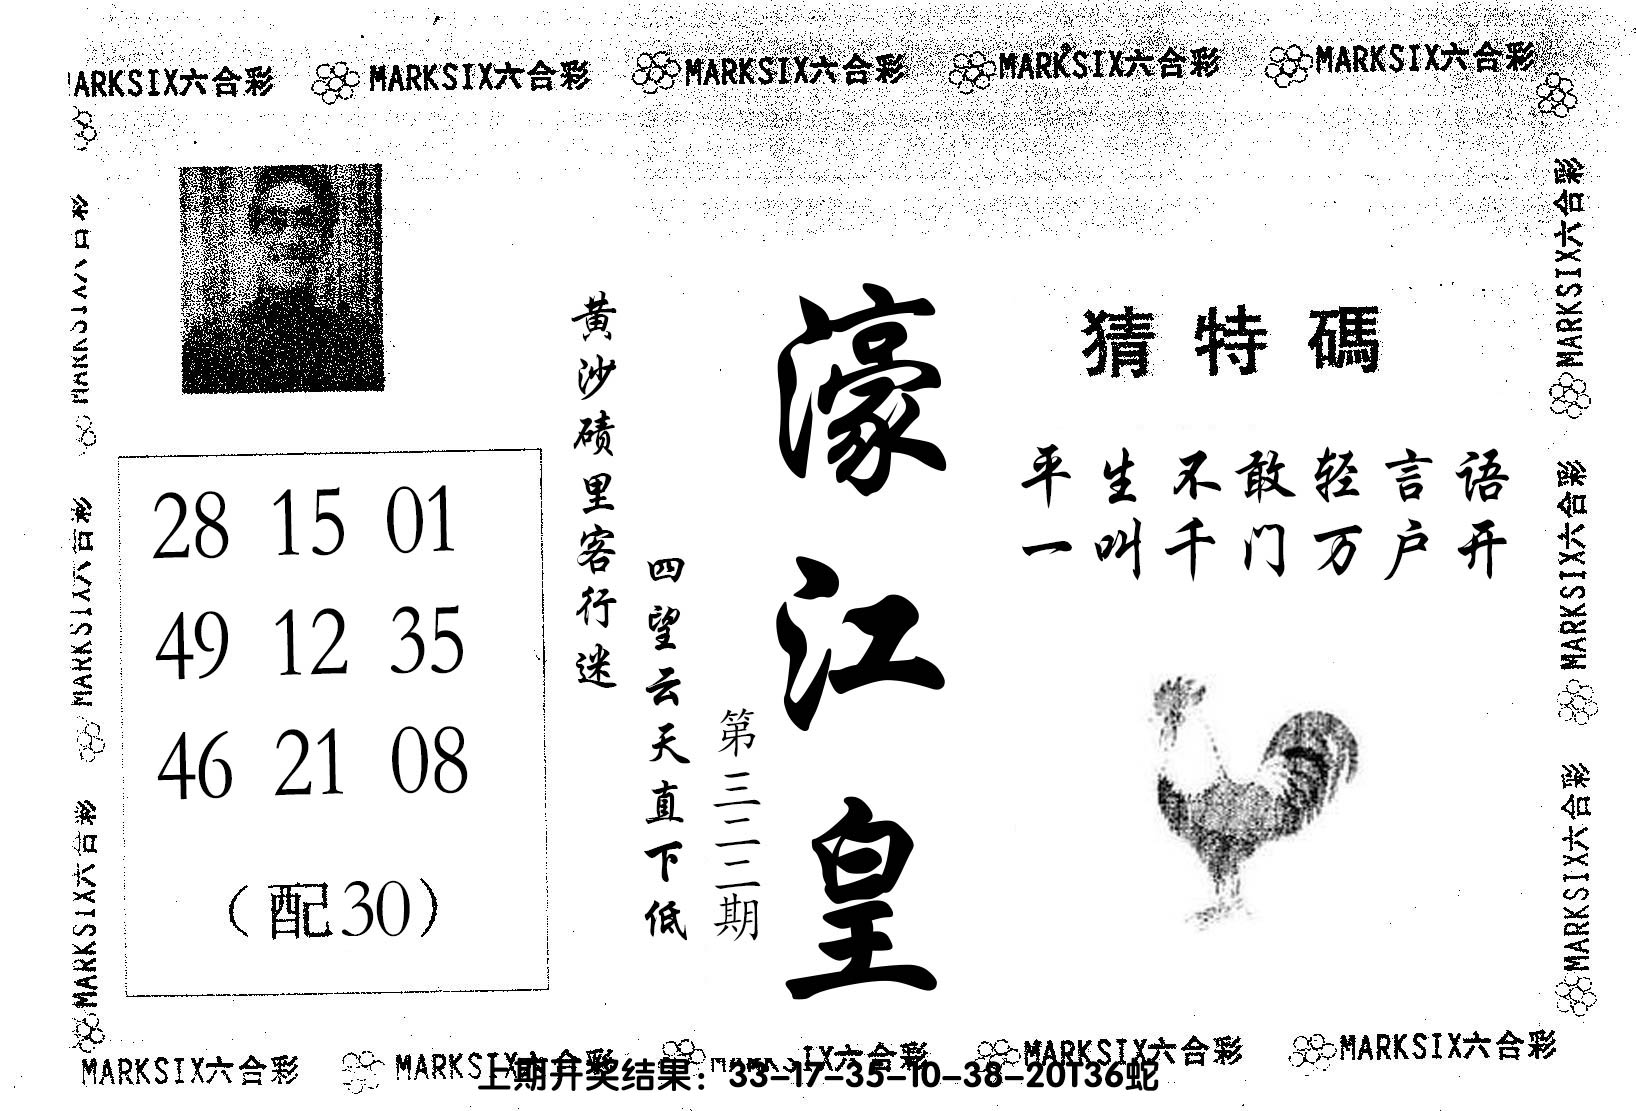 MARKSIX六合彩 MARKSIX六合彩 MARKSIX六合彩 MARKSIX六合彩 MARKSIX六合彩
MARKSIX六合彩
MARKSIX六合彩
MARKSIX六合彩
MARKSIX六合彩
MARKSIX六合彩
MARKSIX六合彩
28 15 01
49 12 35
46 21 08
(配30)
黄沙碛里客行迷
四望云天直下低
第三二二期
濠江皇
猜特碼
平生不敢轻言语
一叫千门万户开
MARKSIX六合彩 MARKSIX六合彩 MARKSIX六合彩 MARKSIX六合彩 MARKSIX六合彩
上期开奖结果：33-17-35-10-38-20T36蛇